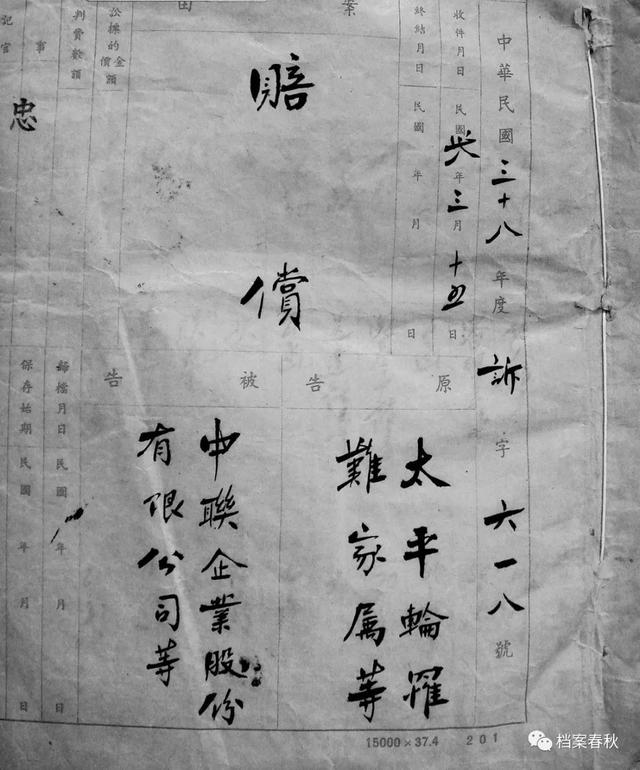 中華民國三十八年度訴字六一八號
收件月日 民國卅八年三月十五日
終結月日 民國 年 月 日
案由
賠償
原告
太平輪罹
難家属等
被告
中聯企業股份
有限公司等
公採的價金額
判費數額
歸檔月日民國 年 月 日
保存始期民國 年 月 日
事
記官
忠
15000×37.4 201
档案春秋